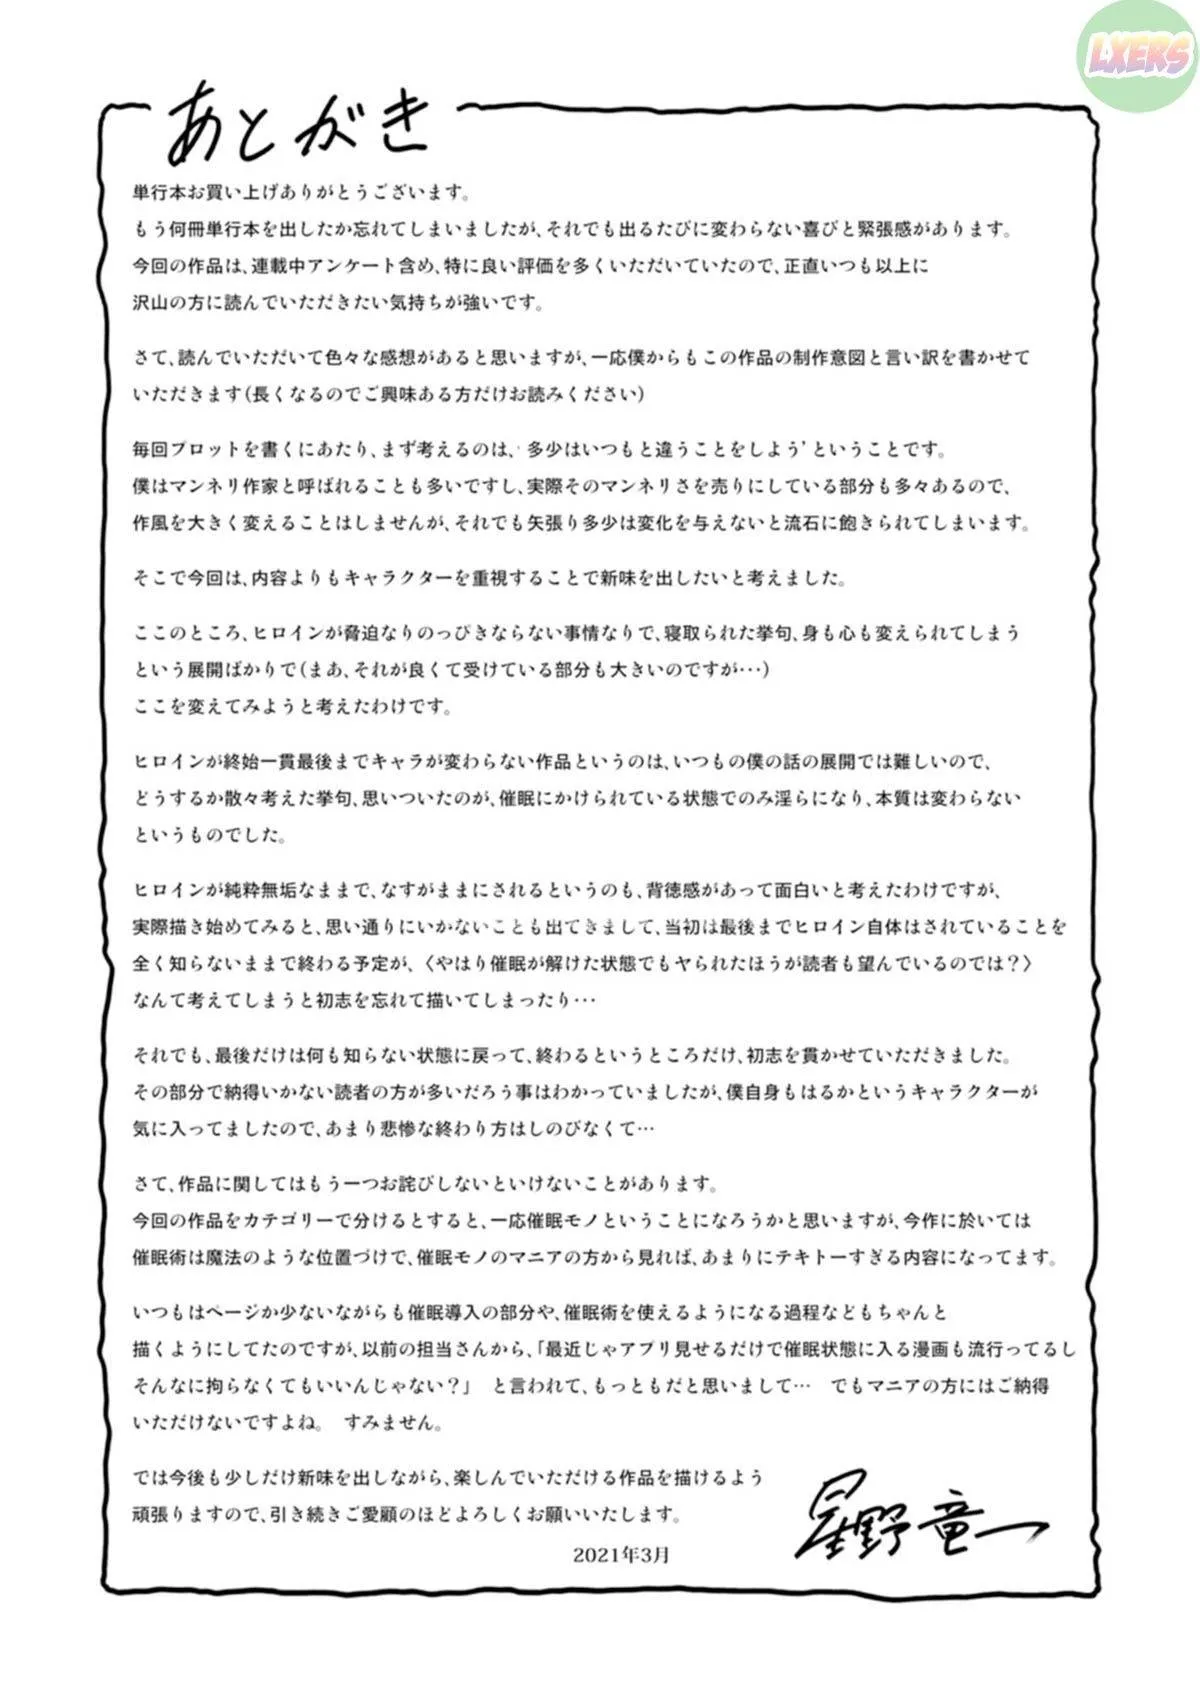 LXERS
あとがき
単行本お買い上げありがとうございます。
もう何冊単行本を出したか忘れてしまいましたが、それでも出るたびに変わらない喜びと緊張感があります。
今回の作品は、連載中アンケート含め、特に良い評価を多くいただいていたので、正直いつも以上に
沢山の方に読んでいただきたい気持ちが強いです。
さて、読んでいただいて色々な感想があると思いますが、一応僕からもこの作品の制作意図と言い訳を書かせて
いただきます(長くなるのでご興味ある方だけお読みください)
毎回プロットを書くにあたり、まず考えるのは、'多少はいつもと違うことをしよう'ということです。
僕はマンネリ作家と呼ばれることも多いですし、実際そのマンネリさを売りにしている部分も多々あるので、
作風を大きく変えることはしませんが、それでも矢張り多少は変化を与えないと流石に飽きられてしまいます。
そこで今回は、内容よりもキャラクターを重視することで新味を出したいと考えました。
ここのところ、ヒロインが脅迫なりのっぴきならない事情なりで、寝取られた挙句、身も心も変えられてしまう
という展開ばかりで(まあ、それが良くて受けている部分も大きいのですが･･･)
ここを変えてみようと考えたわけです。
ヒロインが終始一貫最後までキャラが変わらない作品というのは、いつもの僕の話の展開では難しいので、
どうするか散々考えた挙句、思いついたのが、催眠にかけられている状態でのみ淫らになり、本質は変わらない
というものでした。
ヒロインが純粋無垢なままで、なすがままにされるというのも、背徳感があって面白いと考えたわけですが、
実際描き始めてみると、思い通りにいかないことも出てきまして、当初は最後までヒロイン自体はされていることを
全く知らないままで終わる予定が、〈やはり催眠が解けた状態でもヤられたほうが読者も望んでいるのでは？〉
なんて考えてしまうと初志を忘れて描いてしまったり･･･
それでも、最後だけは何も知らない状態に戻って、終わるというところだけ、初志を貫かせていただきました。
その部分で納得いかない読者の方が多いだろう事はわかっていましたが、僕自身もはるかというキャラクターが
気に入ってましたので、あまり悲惨な終わり方はしのびなくて…
さて、作品に関してはもう一つお詫びしないといけないことがあります。
今回の作品をカテゴリーで分けるとすると、一応催眠モノということになろうかと思いますが、今作に於いては
催眠術は魔法のような位置づけで、催眠モノのマニアの方から見れば、あまりにテキトーすぎる内容になってます。
いつもはページか少ないながらも催眠導入の部分や、催眠術を使えるようになる過程などもちゃんと
描くようにしてたのですが、以前の担当さんから、「最近じゃアプリ見せるだけで催眠状態に入る漫画も流行ってるし
そんなに拘らなくてもいいんじゃない？」　と言われて、もっともだと思いまして…　でもマニアの方にはご納得
いただけないですよね。　すみません。
では今後も少しだけ新味を出しながら、楽しんでいただける作品を描けるよう
頑張りますので、引き続きご愛顧のほどよろしくお願いいたします。
星野竜一
2021年3月